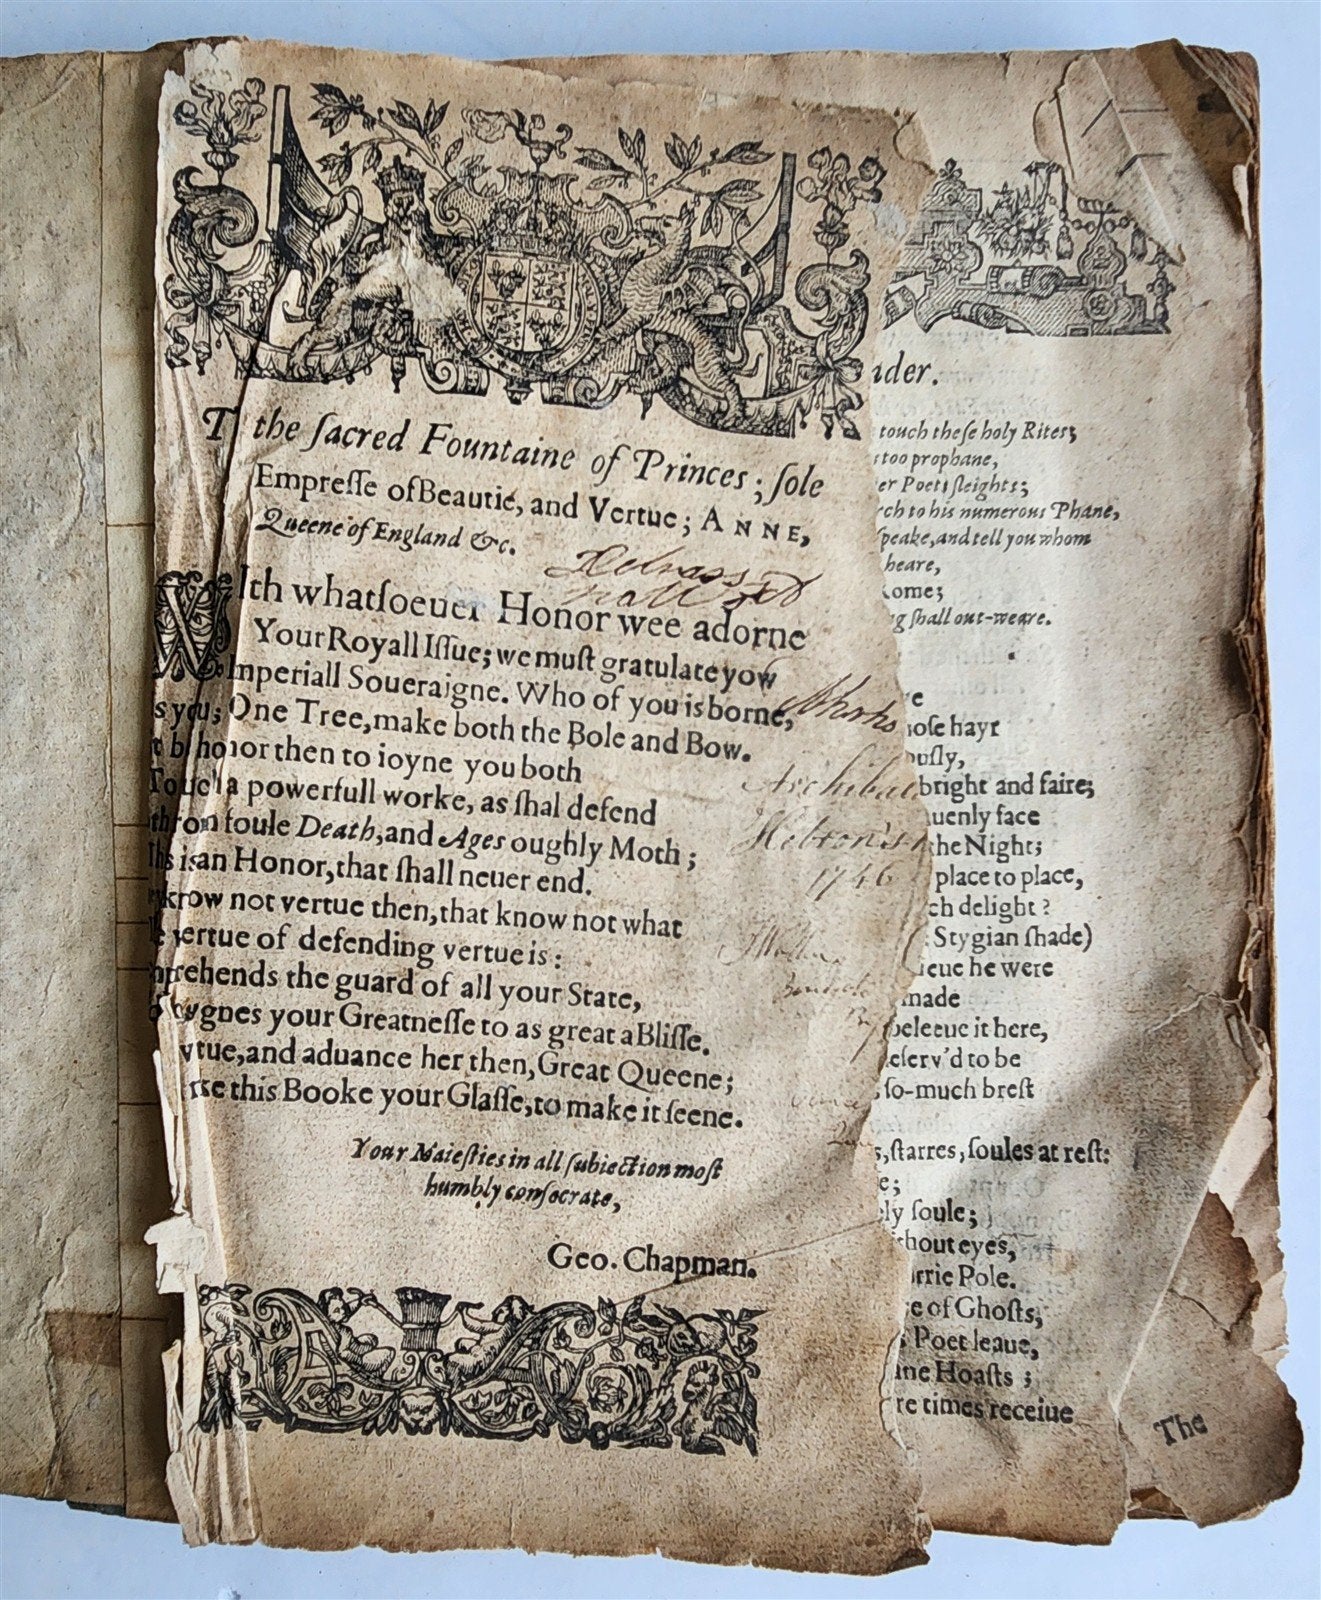 T the ſacred Fountaine of Princes; ſole
Empreſſe of Beautie, and Vertue; ANNE,
Queene of England &c.
With whatſoeuer Honor wee adorne
Your Royall Iſſue; we muſt gratulate yow
Imperiall Soueraigne. Who of you is borne,
s you; One Tree, make both the Bole and Bow.
honor then to ioyne you both
Touch a powerfull worke, as ſhal defend
from foule Death, and Ages oughly Moth;
is an Honor, that ſhall neuer end.
know not vertue then, that know not what
vertue of defending vertue is:
prehends the guard of all your State,
ygnes your Greatneſſe to as great a Bliſſe.
rtue, and aduance her then, Great Queene;
ke this Booke your Glaſſe, to make it ſeene.
Your Maieſties in all ſubiection moſt
humbly conſecrate,
Geo. Chapman.
Archibal
Hebron's
1746
ader.
touch theſe holy Rites;
too prophane,
er Poets ſleights;
rch to his numerous Phane,
ſpeake, and tell you whom
heare,
Rome;
ng ſhall out-weare.
e
hoſe hayr
ouſly,
bright and faire;
uenly face
the Night;
place to place,
ch delight?
Stygian ſhade)
ieue he were
made
beleeue it here,
deſerv'd to be
ſo-much breſt
s, ſtarres, ſoules at reſt:
e;
ely ſoule;
ithout eyes,
orrie Pole.
e of Ghoſts,
s Poet leaue,
ane Hoaſts;
re times receiue
The